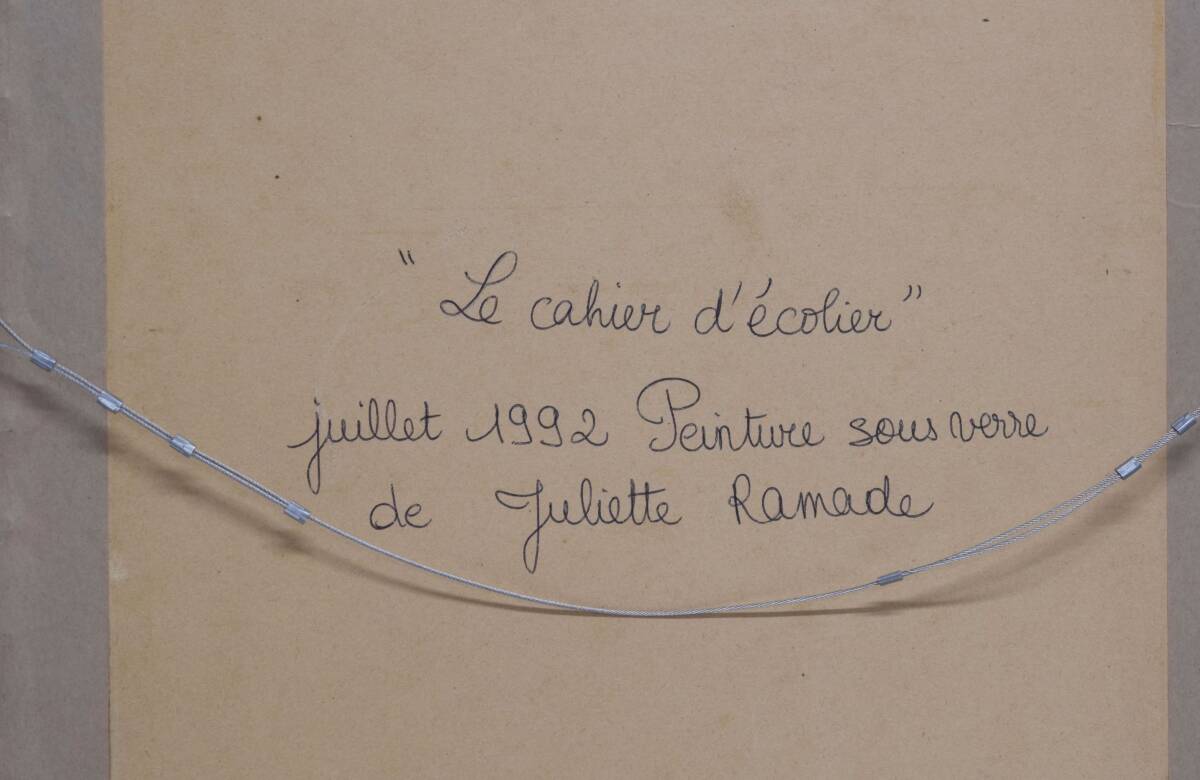 " Le cahier d'écolier "
juillet 1992 Peinture sous verre
de Juliette Ramade